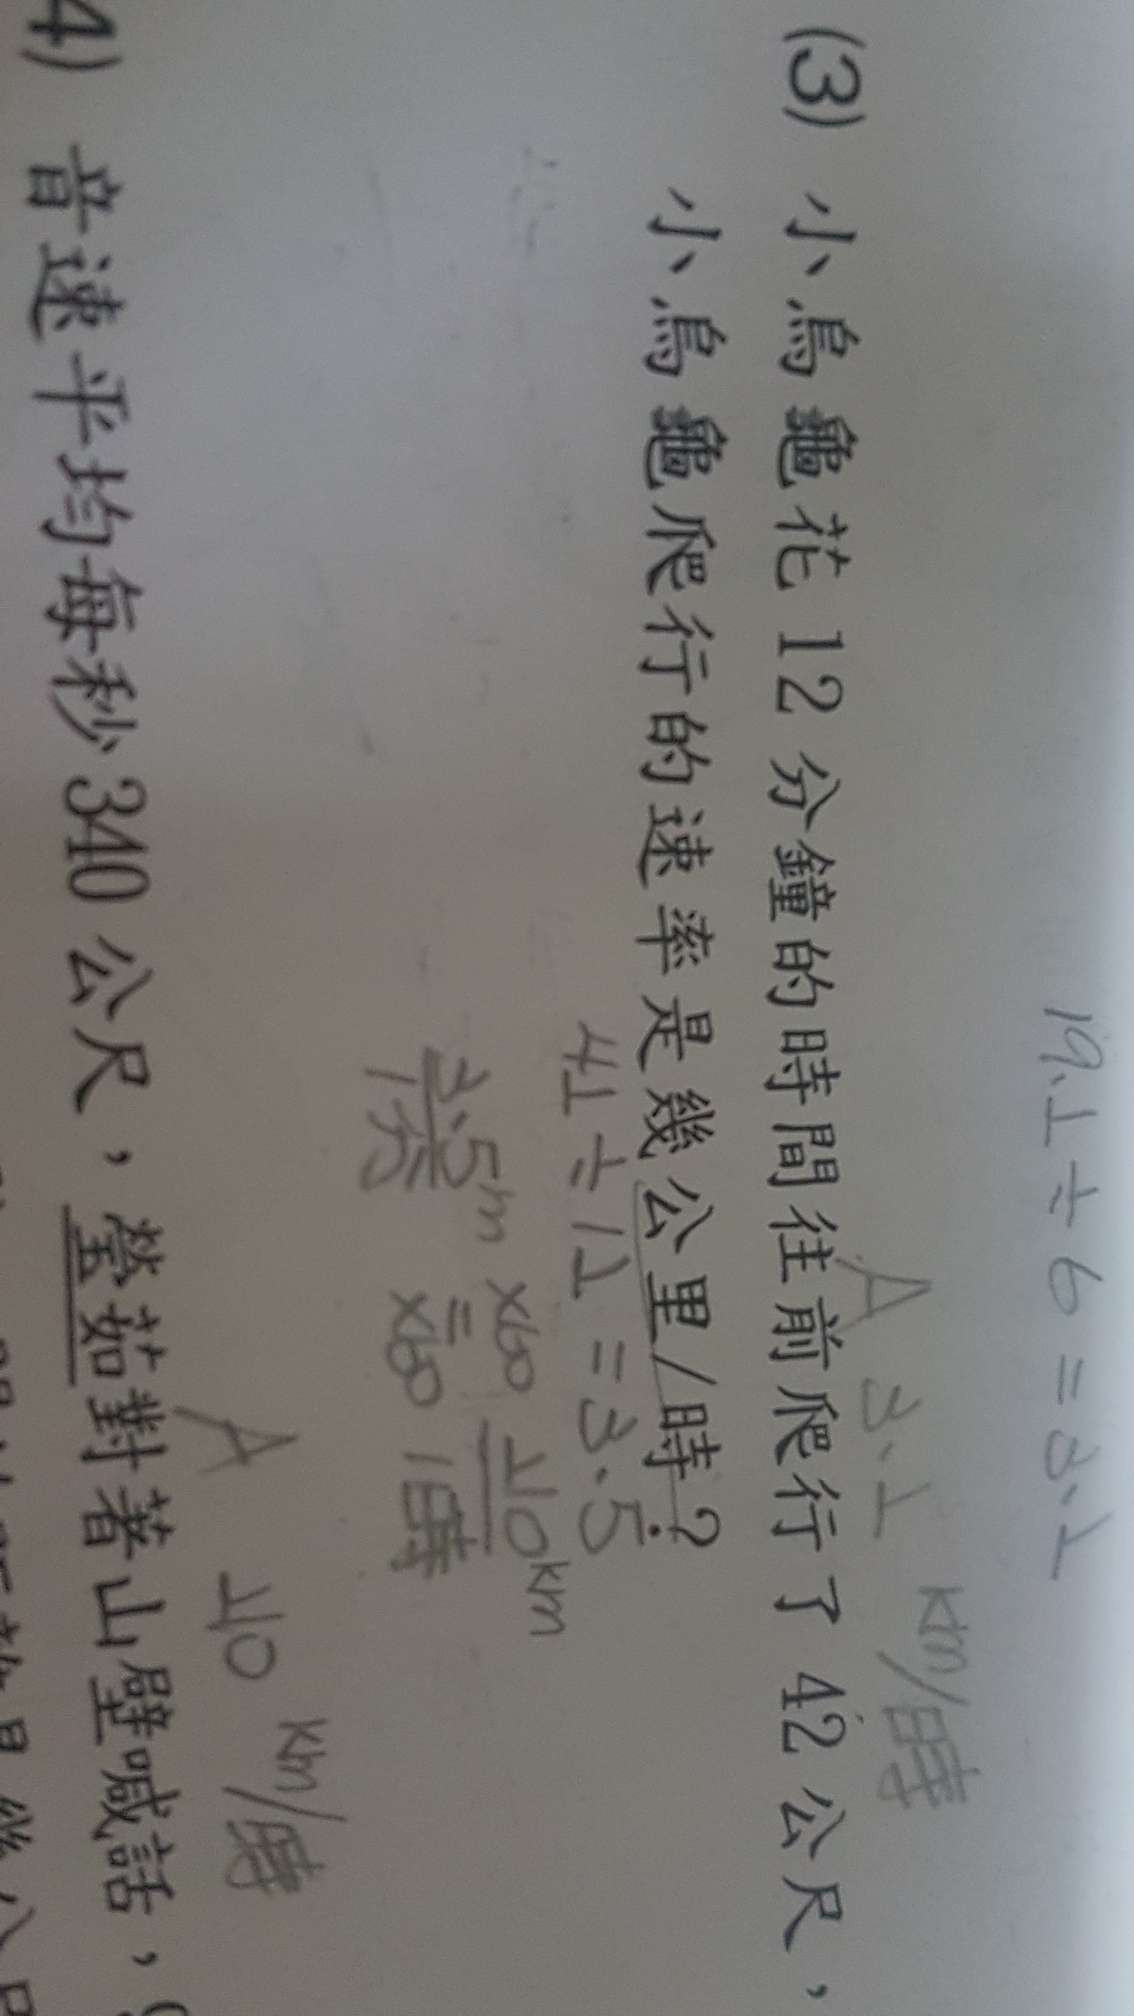 19.2÷6=3.2
A 3.2 km/時
(3) 小烏龜花12分鐘的時間往前爬行了42公尺，
小烏龜爬行的速率是幾公里/時？
42÷12=3.5
3.5m ×60 = 210km
1分 ×60 1時
A 210 km/時
4) 音速平均每秒340公尺，瑩茹對著山壁喊話，